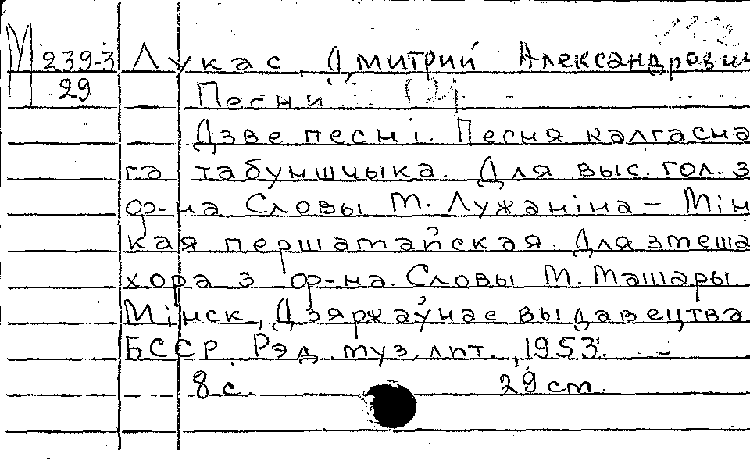 М 239-3 Лукас, Дмитрий Александрович
29 Песни
Дзве песні. Песня калгасна
га табуншчыка. Для выс. гол. з
ф-на Словы М. Лужаніна - Мін
кая першамайская. Для змеша
хора з ф-на. Словы М. Машары
Мінск, Дзяржаўнае выдавецтва
БССР. Рэд. муз. літ., 1953.
8 с. 29 cm.